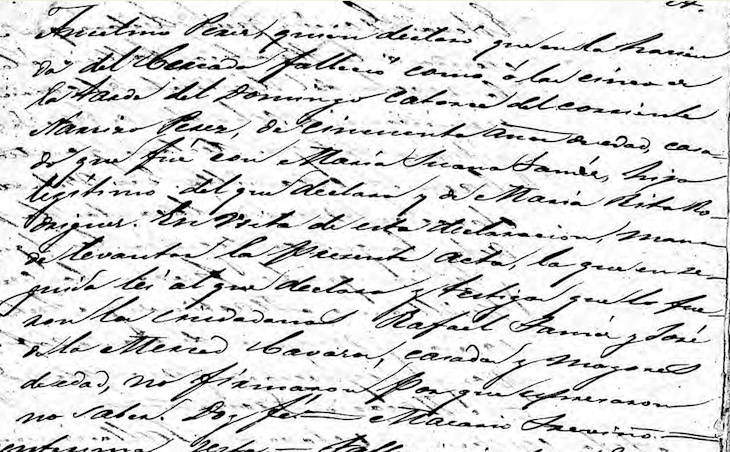 Anselmo Perez, quien declaró que en la hacien
da del Cercado falleció como á las cinco de
la tarde del Domingo catorce del corriente
Narciso Perez, de cincuenta años de edad, casa-
do que fué con María Juana Tamés, hijo
legítimo del que declara y de María Rita Ro-
driguez. En vista de esta declaracion, man
dé levantar la presente acta, la que en se-
guida leí al que declara y testigos que lo fue-
ron los Ciudadanos Rafael Tamés y José
de la Merced casados y mayores
de edad, no firmaron por que espresaron
no saber. Doy fé.— Macario Treviño.—